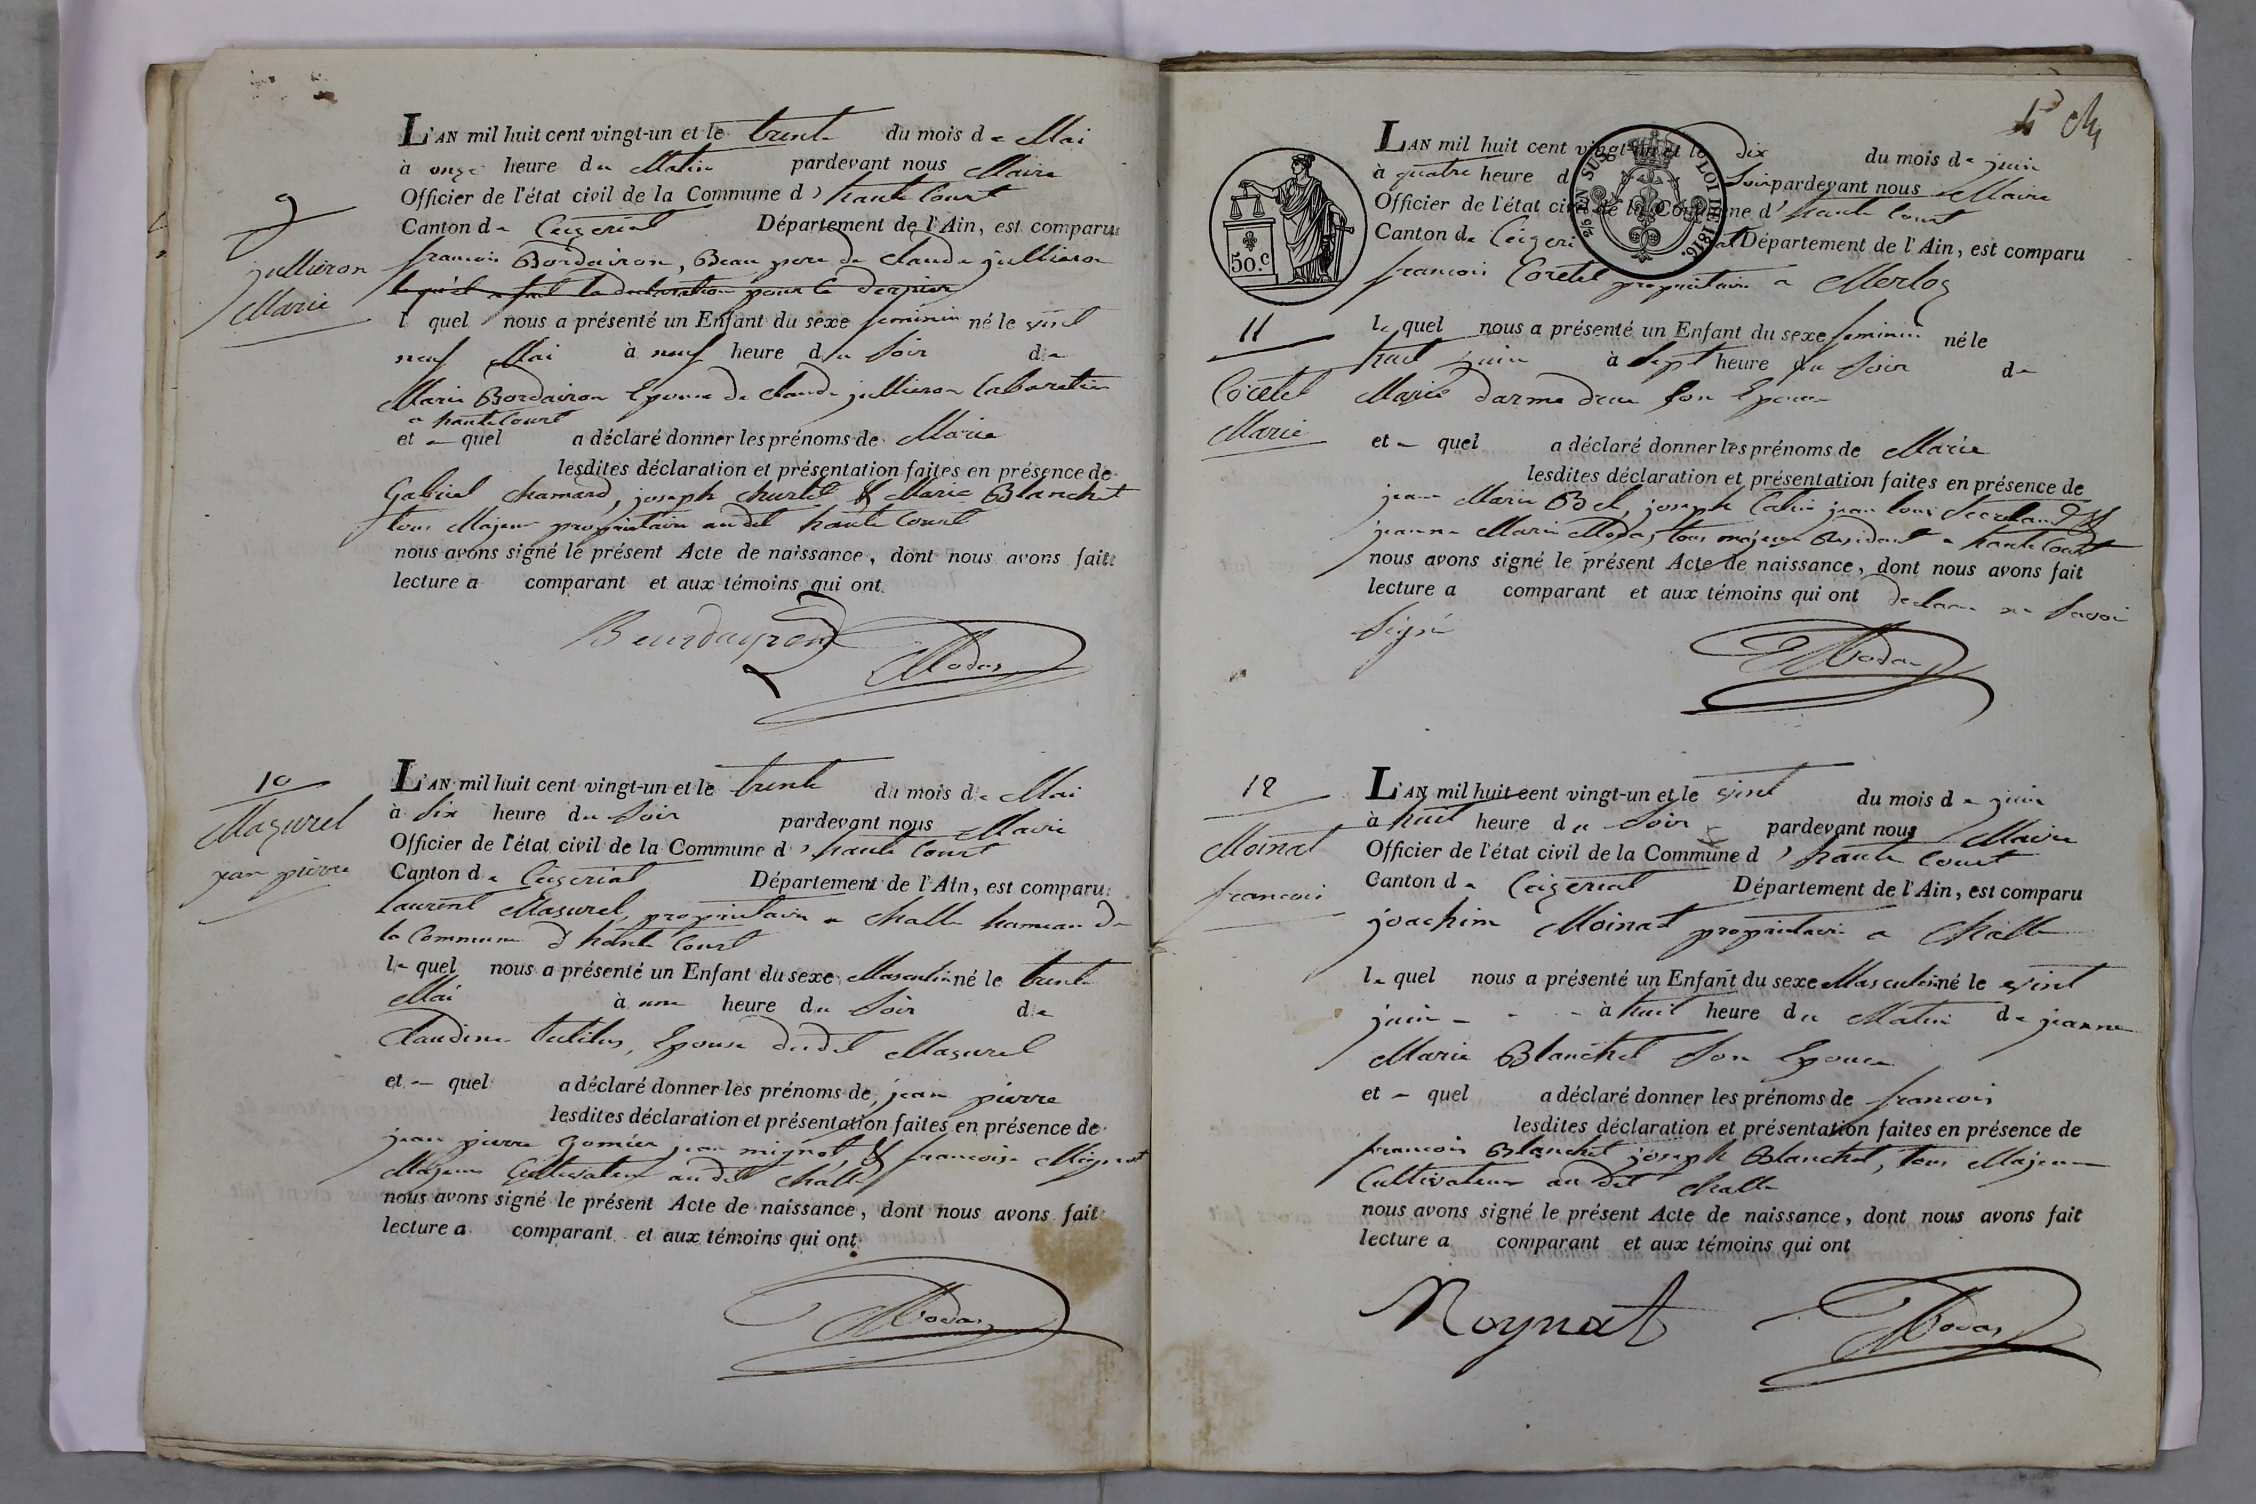 9
jullieron
Marie
L'AN mil huit cent vingt-un et le trente du mois de Mai
à onze heure du Matin pardevant nous Maire
Officier de l'état civil de la Commune d'hautecourt
Canton de Ceyzeriat Département de l'Ain, est comparu
francois Bordairon, Beau pere de claude jullieron
la declaration pour le dernier
l quel nous a présenté un Enfant du sexe feminin né le vint
neuf Mai à neuf heure du Soir de
Marie Bordairon Epouse de claude jullieron Cabaretier
a hautecourt
et - quel a déclaré donner les prénoms de Marie
lesdites déclaration et présentation faites en présence de
Gabriel chamard, joseph churlet & Marie Blanchet
tous Majeur propriétaire audit hautecourt
nous avons signé le présent Acte de naissance, dont nous avons fait
lecture a comparant et aux témoins qui ont
Beurdayron Modas
10
Mazurel
jean pierre
L'AN mil huit cent vingt-un et le trente du mois de Mai
à Six heure du Soir pardevant nous Maire
Officier de l'état civil de la Commune d'hautecourt
Canton de Ceyzeriat Département de l'Ain, est comparu
Laurent Mazurel, propriétaire a challe hameau de
la Commune d'hautecourt
le quel nous a présenté un Enfant du sexe Masculin né le trente
Mai à une heure du Soir de
Claudine Epouse dudit Mazurel
et - quel a déclaré donner les prénoms de jean pierre
lesdites déclaration et présentation faites en présence de
jean pierre gomier jean mignot & francoise Mignot
Majeurs Cultivateur audit challe
nous avons signé le présent Acte de naissance, dont nous avons fait
lecture a comparant et aux témoins qui ont
Modas
50.c
2/5 EN SUS LOI DE 1816.
11
Coretel
Marie
L'AN mil huit cent vingt-un et le Dix du mois de juin
à quatre heure d Soir pardevant nous Maire
Officier de l'état civil de la Commune d'hautecourt
Canton de Ceyzeriat Département de l'Ain, est comparu
francois Coretel propriétaire a Merloz
le quel nous a présenté un Enfant du sexe feminin né le
huit juin à Sept heure du Soir de
Marie darmedieu Son Epouse
et - quel a déclaré donner les prénoms de Marie
lesdites déclaration et présentation faites en présence de
jean Marie Bel, joseph Catin jean louis &
jeanne Marie Modas, tous majeur Residant a hautecourt
nous avons signé le présent Acte de naissance, dont nous avons fait
lecture a comparant et aux témoins qui ont declare ne Savoir
Signé
Modas
12
Moinat
francois
L'AN mil huit cent vingt-un et le vint du mois de juin
à huit heure du Soir pardevant nous Maire
Officier de l'état civil de la Commune d'hautecourt
Canton de Ceizeriat Département de l'Ain, est comparu
joachim Moinat propriétaire a Challe
le quel nous a présenté un Enfant du sexe Masculin né le vint
juin - - - à huit heure du Matin de jeanne
Marie Blanchet Son Epouse
et - quel a déclaré donner les prénoms de francois
lesdites déclaration et présentation faites en présence de
francois Blanchet joseph Blanchet, tous Majeur
Cultivateur audit challe
nous avons signé le présent Acte de naissance, dont nous avons fait
lecture a comparant et aux témoins qui ont
Moynat Modas